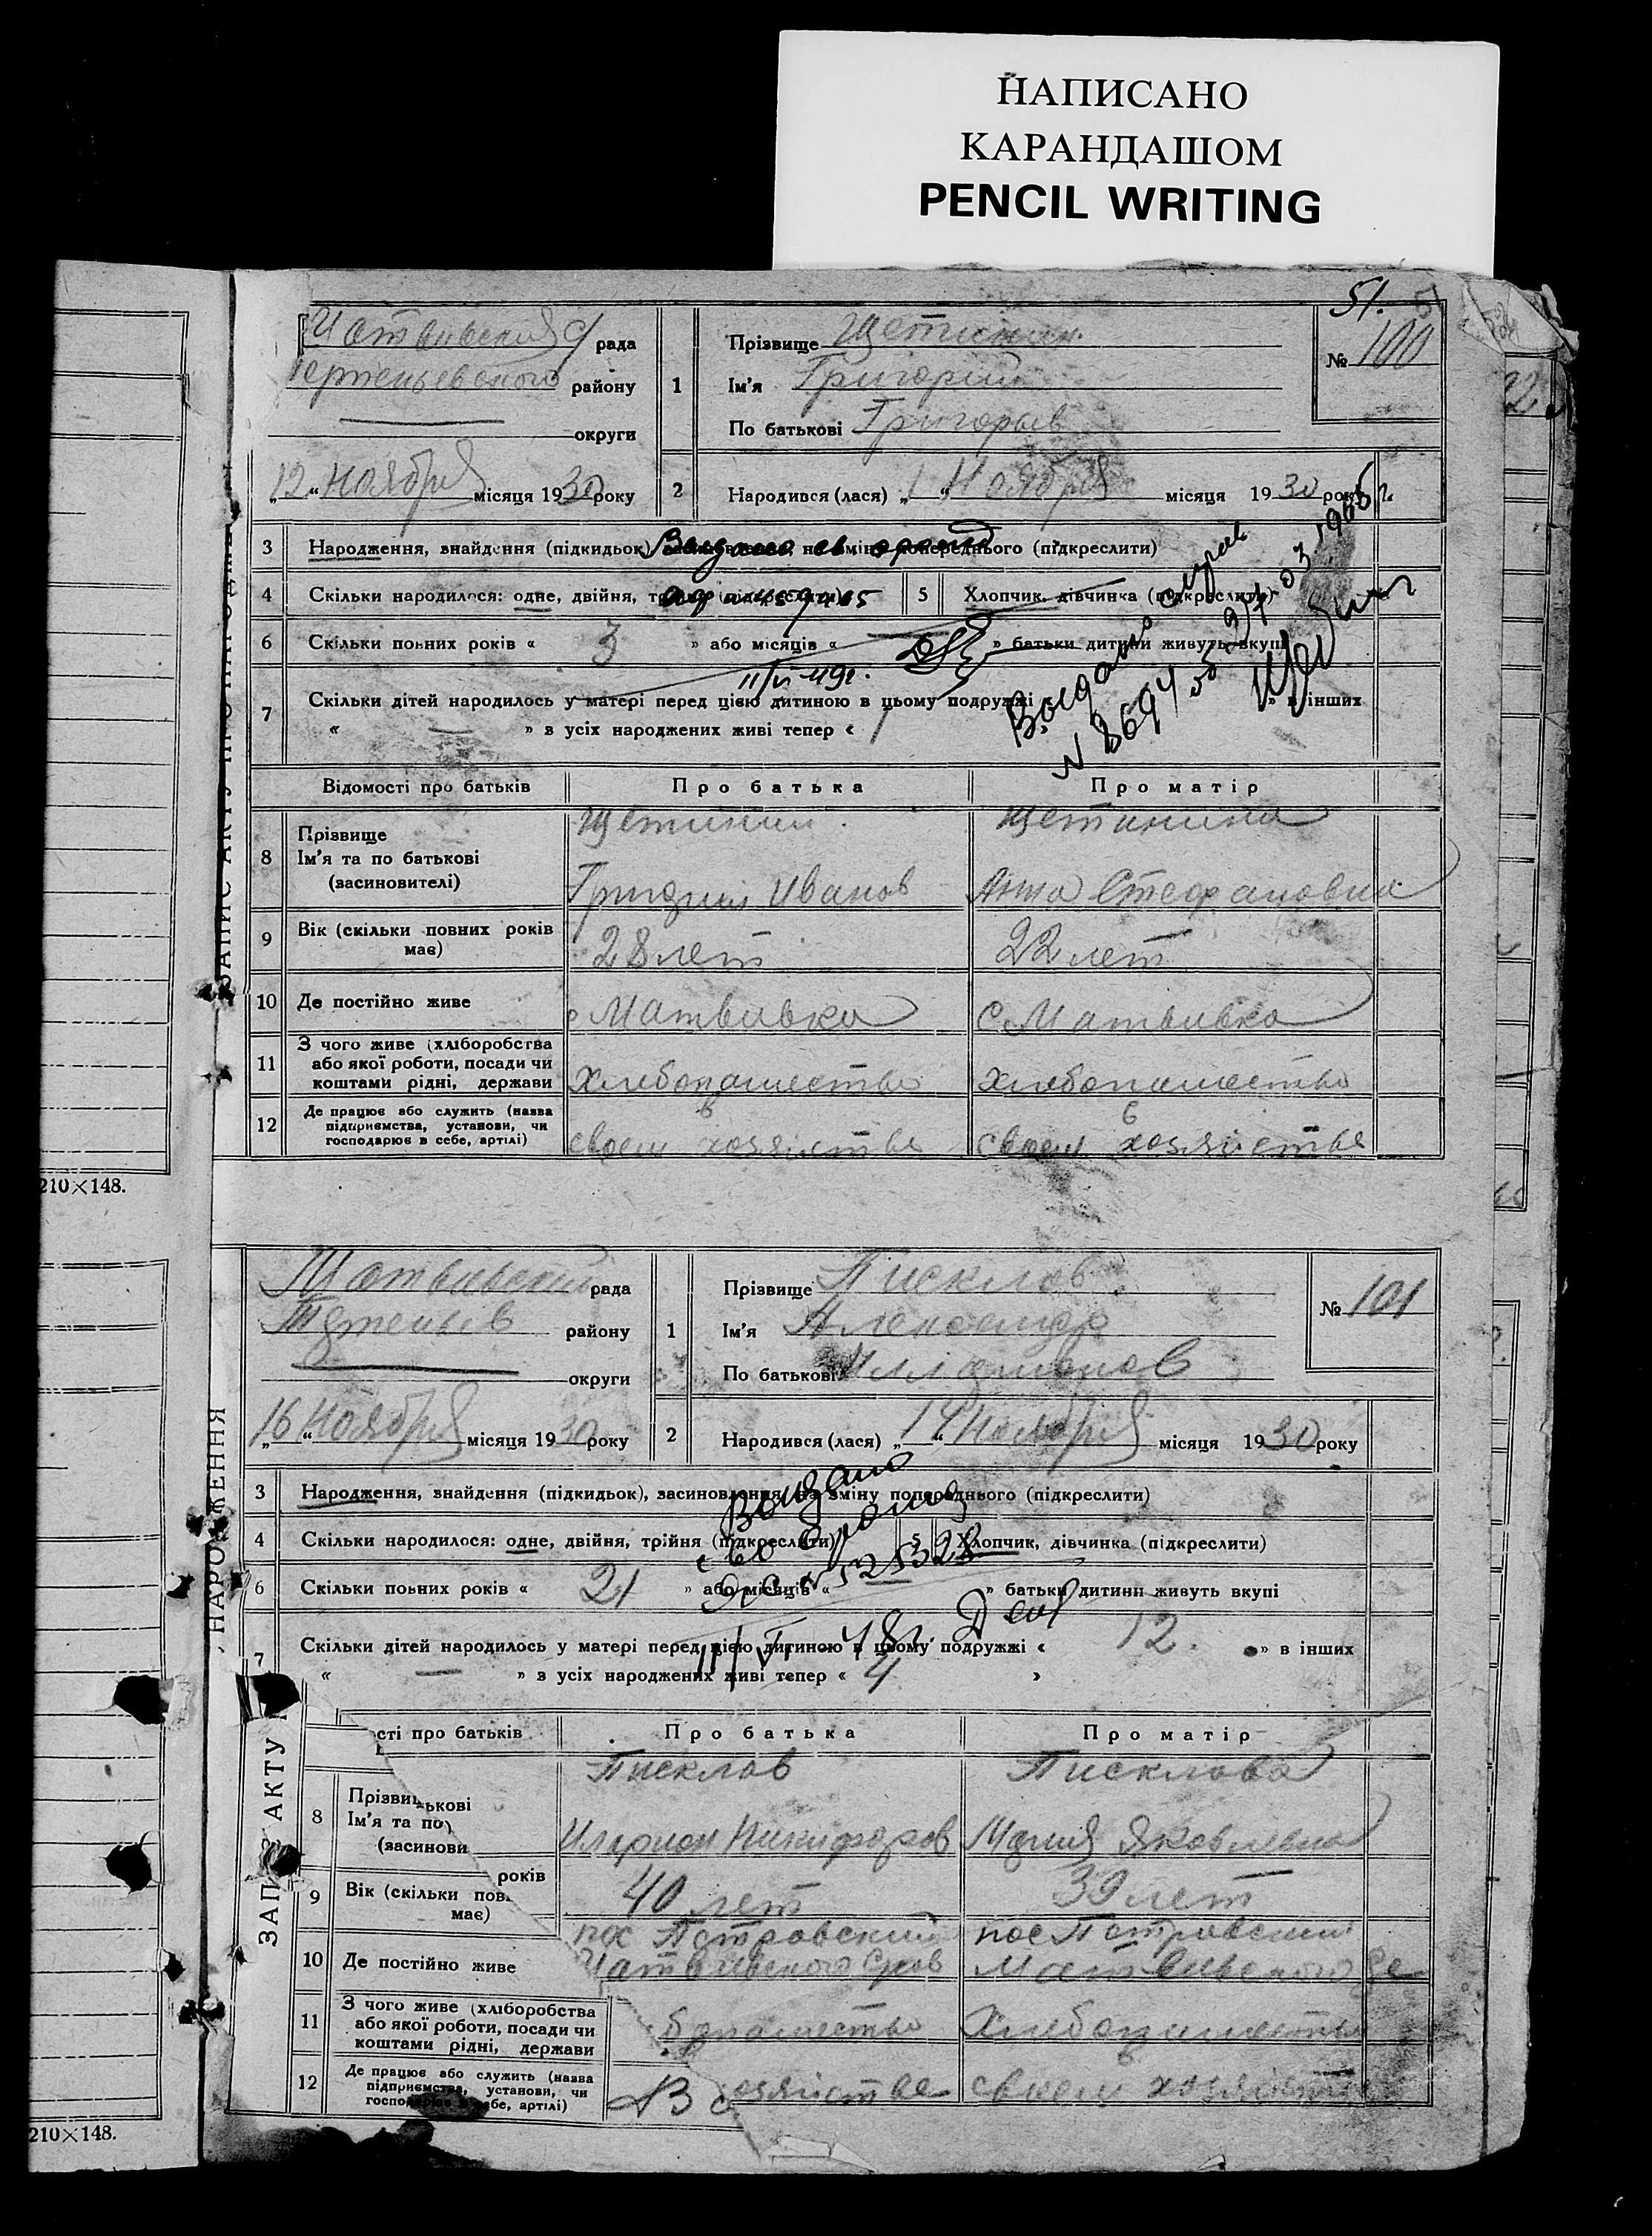 НАПИСАНО
КАРАНДАШОМ
PENCIL WRITING
51.
рада
району
округи
„12“ Ноября місяця 1930 року
1
Прізвище Щетинин
Ім'я Григорий
По батькові Григорьев
№ 100
2
Народився (лася) „1“ Ноября місяця 1930 року
3 Народження, знайдення (підкидьок), засиновлення, на зміну попереднього (підкреслити)
4 Скільки народилося: одне, двійня, трійня (підкреслити)
5 Хлопчик, дівчинка (підкреслити)
6 Скільки повних років « 3 » або місяців « » батьки дитини живуть вкупі
11/VI 49г.
7 Скільки дітей народилось у матері перед цією дитиною в цьому подружжі « » в інших
« — » з усіх народжених живі тепер « 1
Відомості про батьків
Про батька
Про матір
8 Прізвище
Ім'я та по батькові
(засиновителі)
Щетинин
Григорий Иванов
Щетинина
Анна Стефановна
9 Вік (скільки повних років
має)
28 лет
22 лет
10 Де постійно живе
с Матвивка
с Матвивка
11 З чого живе (хліборобства
або якої роботи, посади чи
коштами рідні, держави
Хлебопашество
Хлебопашество
12 Де працює або служить (назва
підприємства, установи, чи
господарює в себе, артілі)
в
своем хозяйстве
в
своем хозяйстве
ЗАПИС АКТУ ПРО НАРОДЖЕННЯ
210×148.
рада
району
округи
„16“ Ноября місяця 1930 року
1
Прізвище Писклов
Ім'я Александр
По батькові Илларионов
№ 101
2
Народився (лася) „14“ Ноября місяця 1930 року
3 Народження, знайдення (підкидьок), засиновлення, на зміну попереднього (підкреслити)
4 Скільки народилося: одне, двійня, трійня (підкреслити)
5 Хлопчик, дівчинка (підкреслити)
6 Скільки повних років « 21 » або місяців « — » батьки дитини живуть вкупі
7 Скільки дітей народилось у матері перед цією дитиною в цьому подружжі « 12. » в інших
« — » з усіх народжених живі тепер « 4 »
ості про батьків
Про батька
Про матір
8 Прізви
ькові
Ім'я та по
(засинови
Писклов
Иларион Никифоров
Писклова
Мария Яковлевна
років
9 Вік (скільки пов
має)
40 лет
39 лет
10 Де постійно живе
пос Петровский
пос Петровский
11 З чого живе (хліборобства
або якої роботи, посади чи
коштами рідні, держави
Хлебопашество
12 Де працює або служить (назва
підприємства, установи, чи
господарює в себе, артілі)
В
хозяйстве
в
своем хозяйстве
НАРОДЖЕННЯ
ЗАПИС АКТУ
210×148.